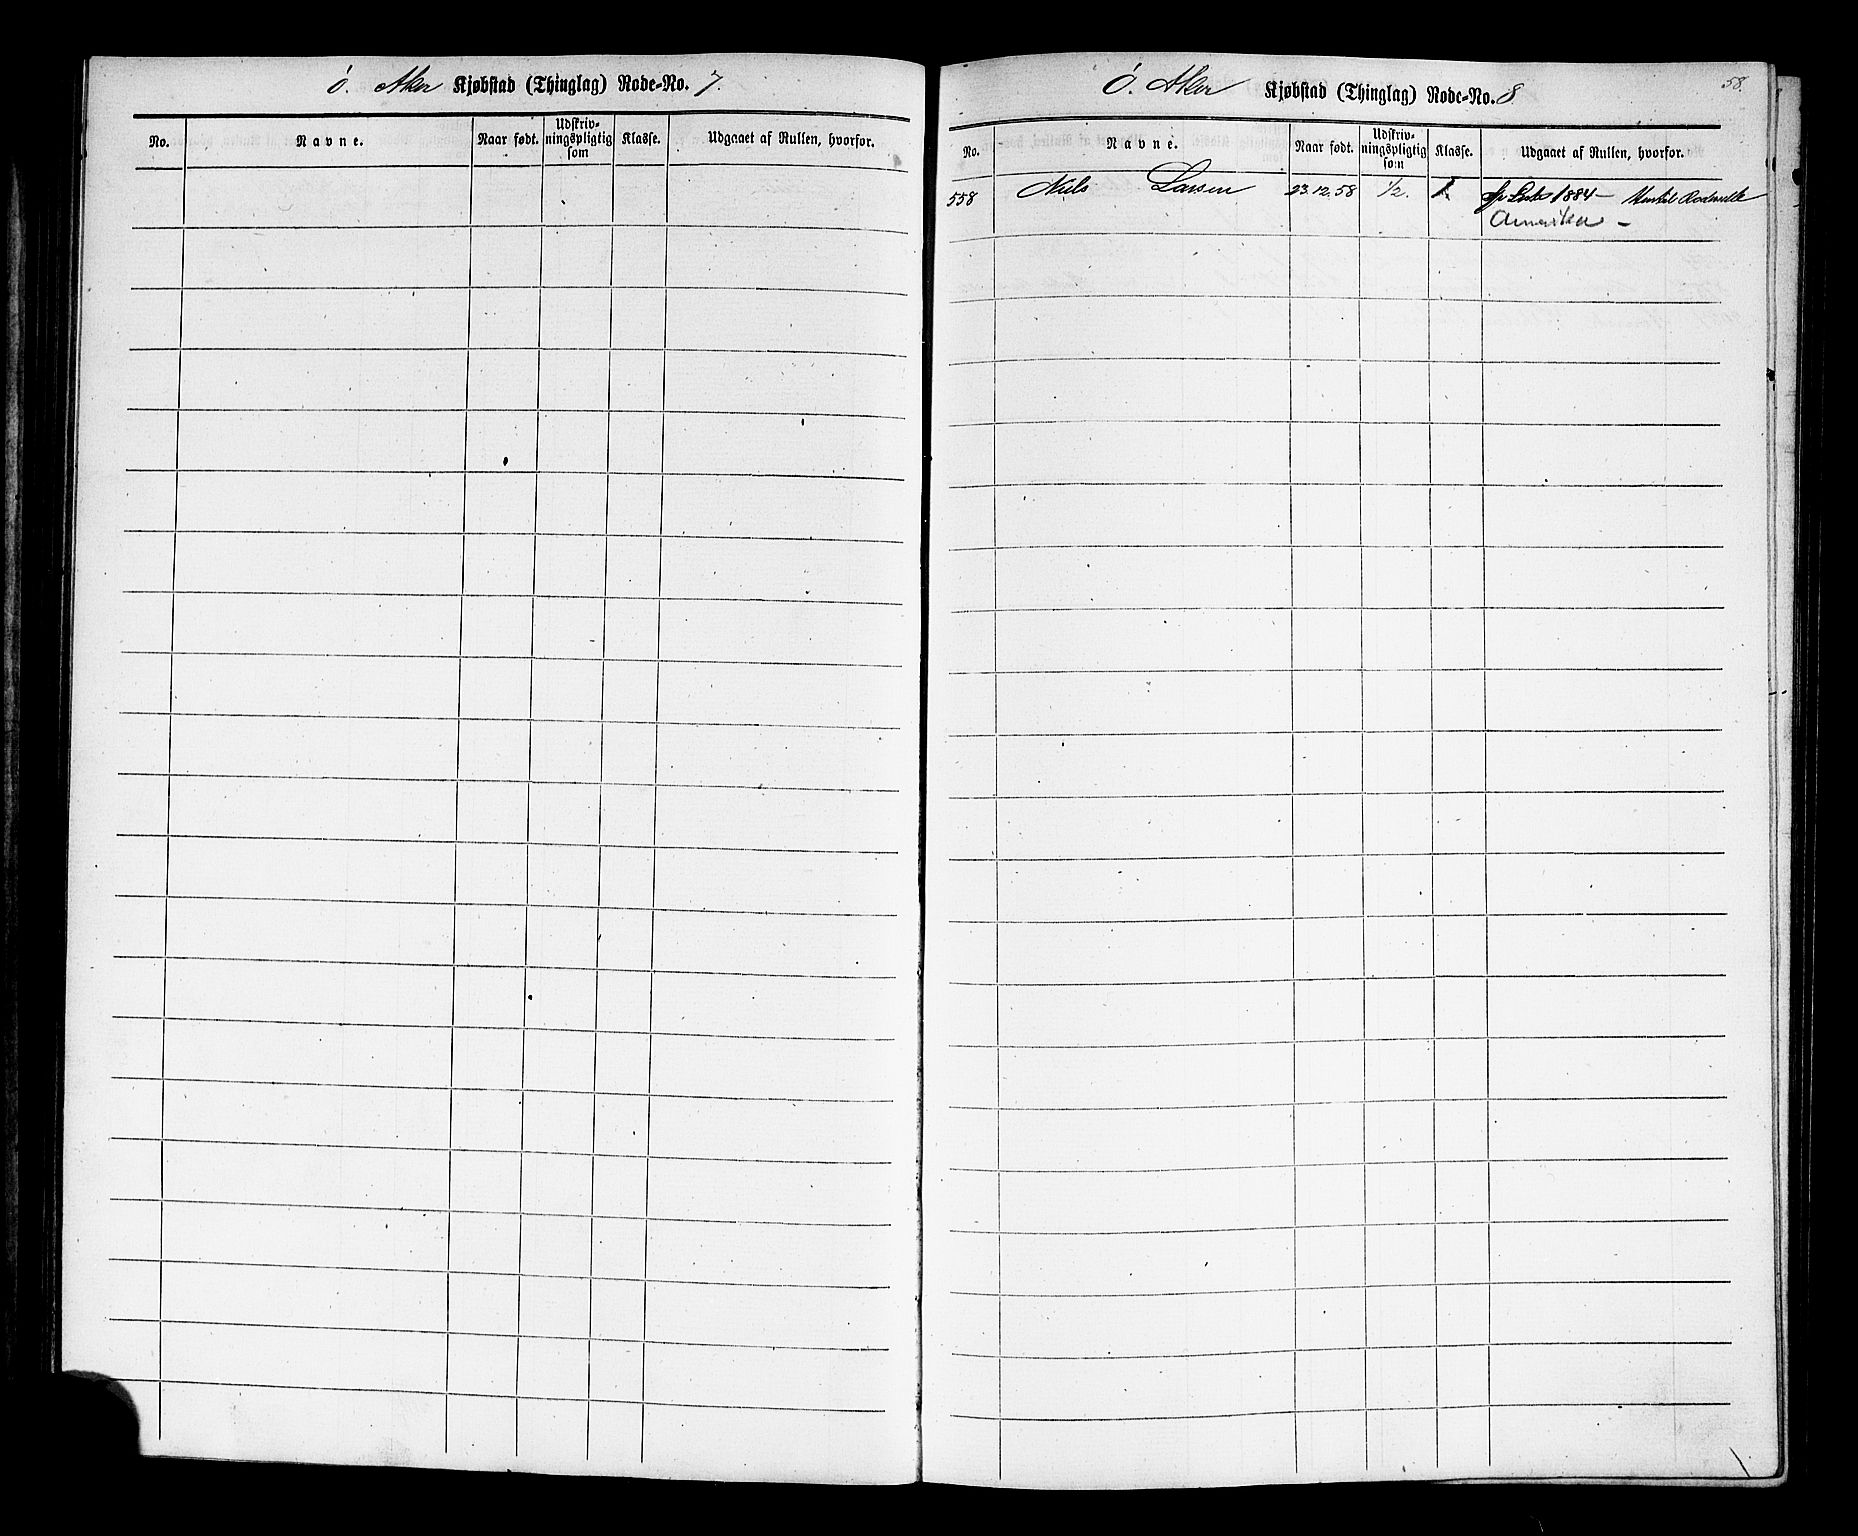 Ö. Aker Kjøbstad (Thinglag) Rode-No. 7.
No. Navne. Naar født. Udskriv-
ningspligtig
som Klasse. Udgaaet af Rullen, hvorfor.
58.
Ö. Aker Kjøbstad (Thinglag) Rode-No. 8
No. Navne. Naar født. Udskriv-
ningspligtig
som Klasse. Udgaaet af Rullen, hvorfor.
558 Niels Larsen 23.12.58 1/2. 1 1884-
Amerika -